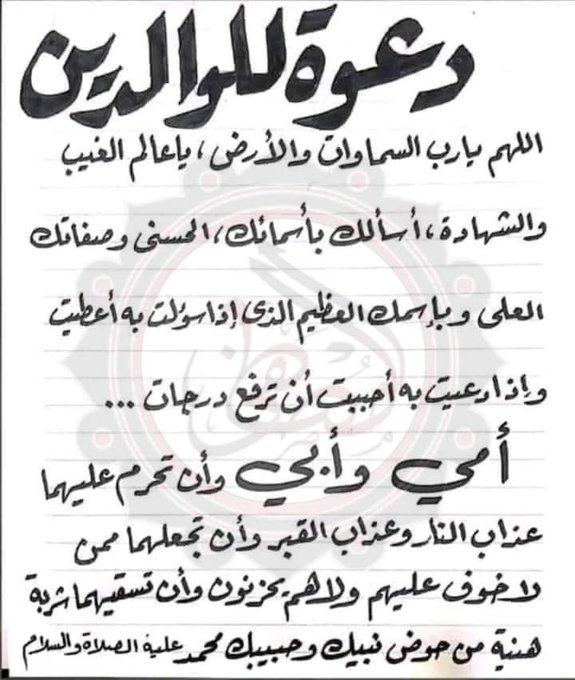 دعوة للوالدين
اللهم يارب السماوات والأرض، ياعالم الغيب
والشهادة، أسألك بأسمائك، الحسنى وصفاتك
العلى وبإسمك العظيم الذى إذا سؤلت به أعطيت
وإذا دعيت به أجبت أن ترفع درجات ...
أمي وأبي وأن تحرم عليهما
عذاب النار وعذاب القبر وأن تجعلهما ممن
لا خوف عليهم ولا هم يحزنون وأن تسقيهما شربة
هنية من حوض نبيك وحبيبك محمد علية الصلاة والسلام